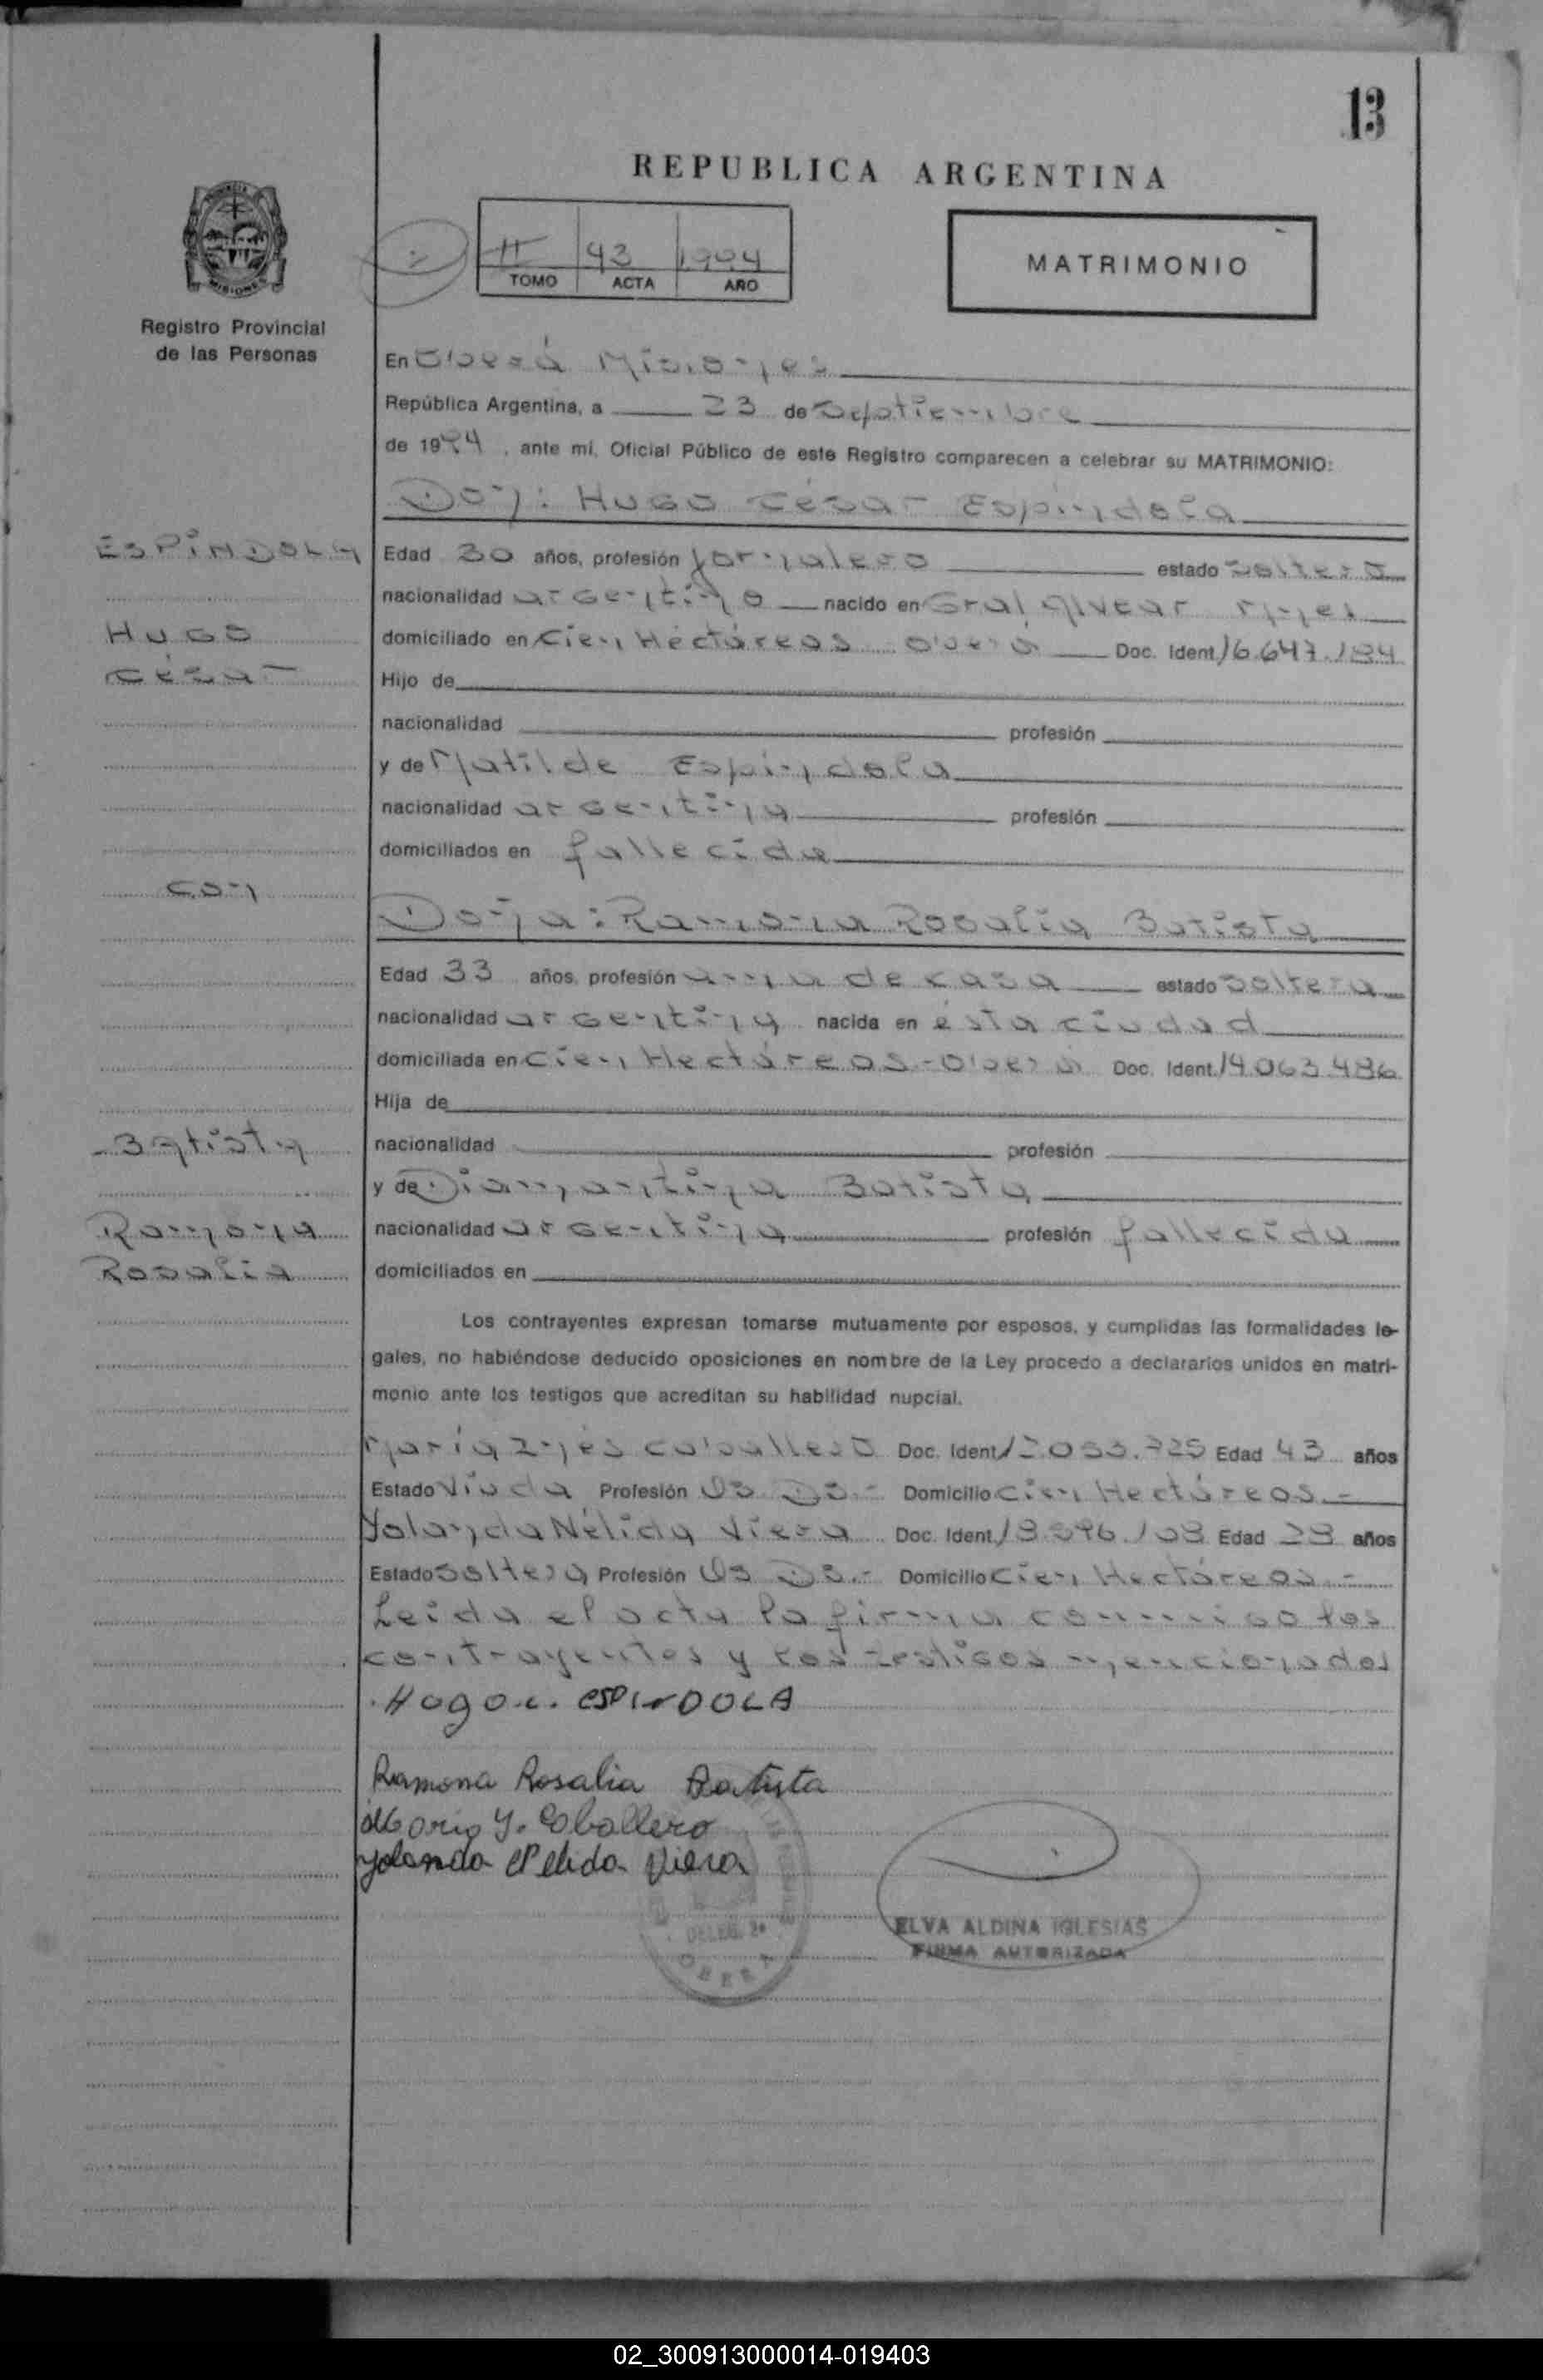 13
REPUBLICA ARGENTINA
II 43 1994
TOMO ACTA AÑO
MATRIMONIO
Registro Provincial
de las Personas
En Oberá Misiones
República Argentina, a 23 de Septiembre
de 1994, ante mí, Oficial Público de este Registro comparecen a celebrar su MATRIMONIO:
Don: Hugo César Espíndola
ESPÍNDOLA
Hugo
César
Edad 30 años, profesión jornalero estado soltero
nacionalidad argentino nacido en Gral Alvear Mnes
domiciliado en Cien Hectáreas Oberá Doc. Ident. 16.647.184
Hijo de
nacionalidad profesión
y de Matilde Espíndola
nacionalidad argentina profesión
domiciliados en fallecida
con
Doña: Ramona Rosalia Batista
Edad 33 años, profesión ama de casa estado soltera
nacionalidad argentina nacida en ésta ciudad
domiciliada en Cien Hectáreas - Oberá Doc. Ident. 14.063.486
Hija de
Batista
nacionalidad profesión
y de Diamantina Batista
Ramona
Rosalia
nacionalidad argentina profesión fallecida
domiciliados en
Los contrayentes expresan tomarse mutuamente por esposos, y cumplidas las formalidades le-
gales, no habiéndose deducido oposiciones en nombre de la Ley procedo a declararlos unidos en matri-
monio ante los testigos que acreditan su habilidad nupcial.
María Inés Caballero Doc. Ident. Edad 43 años
Estado Viuda Profesión Domicilio Cien Hectáreas.-
Yolanda Nélida Viera Doc. Ident. Edad años
Estado soltera Profesión Domicilio Cien Hectáreas -
Leída el acta la firman conmigo los
contrayentes y los testigos mencionados
Hugo. c. ESPINDOLA
Ramona Rosalia Batista
Maria Y. Caballero
Yolanda Nelida Viera
DELEG. 2ª
OBERA
ELVA ALDINA IGLESIAS
FIRMA AUTORIZADA
02_300913000014-019403